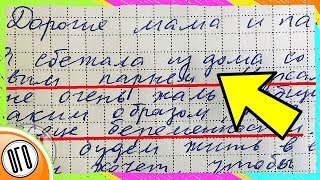 Дорогие мама и па
Я сбежала из дома со
вым парнем
не очень жаль
аким образом
беременности
будем жить в
хочет чтобы
ОГО